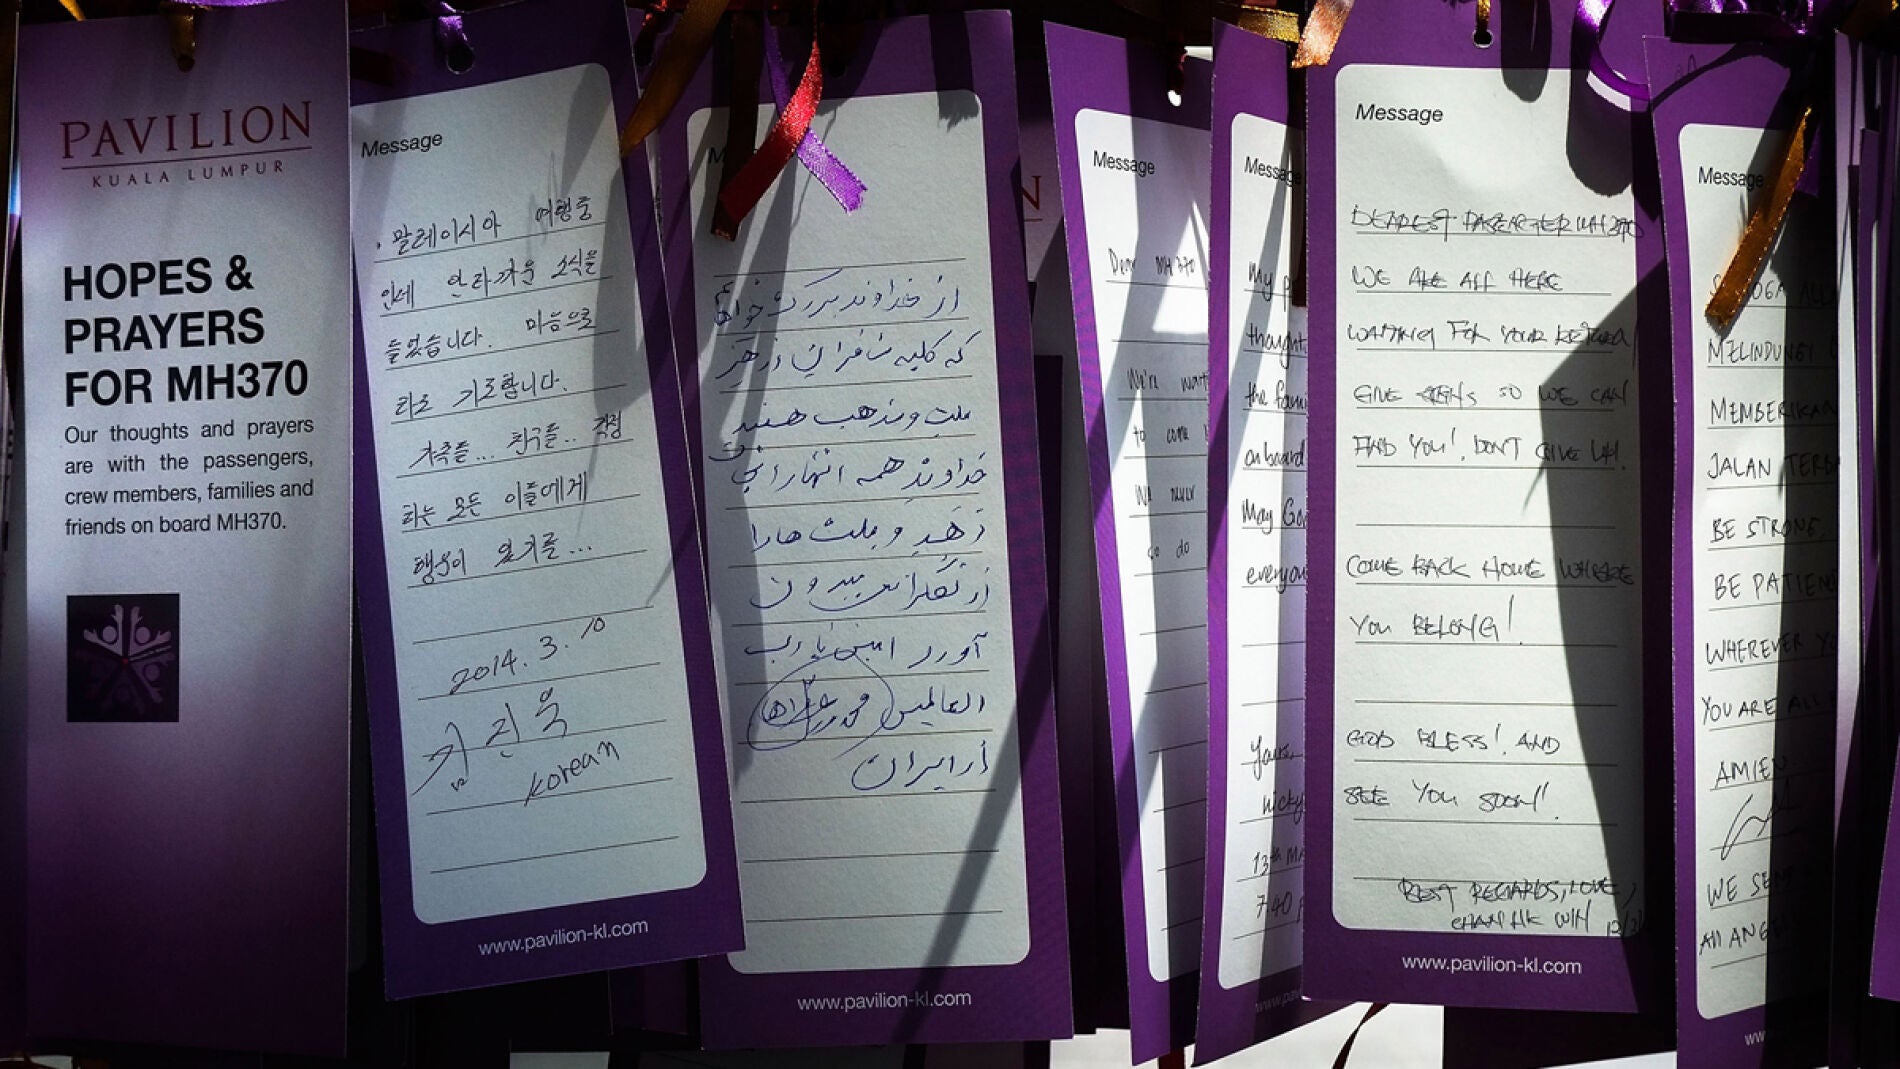 PAVILION
KUALA LUMPUR
HOPES &
PRAYERS
FOR MH370
Our thoughts and prayers
are with the passengers,
crew members, families and
friends on board MH370.
Message
말레이시아 여행중
인데 안타까운 소식을
들었습니다. 마음으로
라도 기도합니다.
가족들... 친구들.. 걱정
하는 모든 이들에게
행운이 있기를...
2014. 3. 10
김진욱
Korean
www.pavilion-kl.com
از خداوند بزرگ خواهم
که کلیه مسافران از هر
ملت و مذهب هستند
خداوند همه آنها را نجات
دهد و ملت ها را
از نگرانی بیرون
آورد امین یا رب
العالمین
از ایران
www.pavilion-kl.com
Message
Dear MH370
We're
to come
We never
so do
Message
My
the
on board
May
Yours,
Nicky
13th
7:40
Message
DEAREST PASSENGER MH370
WE ARE ALL HERE
WAITING FOR YOUR RETURN
GIVE SIGNS SO WE CAN
FIND YOU! DON'T GIVE UP.
COME BACK HOME WHERE
YOU BELONG!
GOD BLESS! AND
SEE YOU SOON!
BEST REGARDS, LOVE,
CHAN HK WIN
www.pavilion-kl.com
Message
MELINDUNGI
MEMBERIKAN
JALAN
BE STRONG,
BE PATIENT
WHEREVER
YOU ARE
AMIEN.
WE
All